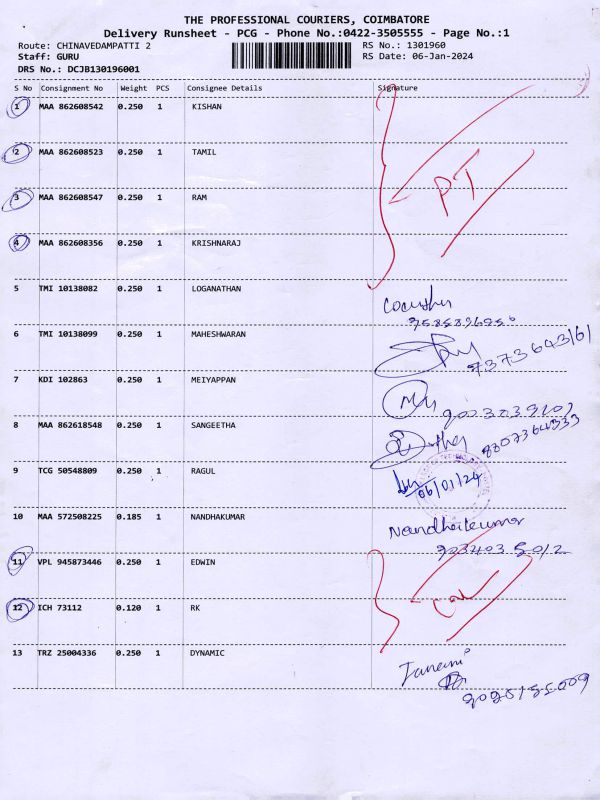 THE PROFESSIONAL COURIERS, COIMBATORE
Delivery Runsheet - PCG - Phone No.:0422-3505555 - Page No.:1
Route: CHINAVEDAMPATTI 2 RS No.: 1301960
Staff: GURU RS Date: 06-Jan-2024
DRS No.: DCJB130196001
S No Consignment No Weight PCS Consignee Details Signature
1 MAA 862608542 0.250 1 KISHAN
2 MAA 862608523 0.250 1 TAMIL
PT
3 MAA 862608547 0.250 1 RAM
4 MAA 862608356 0.250 1 KRISHNARAJ
5 TMI 10138082 0.250 1 LOGANATHAN
6 TMI 10138099 0.250 1 MAHESHWARAN
7 KDI 102863 0.250 1 MEIYAPPAN
8 MAA 862618548 0.250 1 SANGEETHA
8807364333
9 TCG 50548809 0.250 1 RAGUL
06/01/24
10 MAA 572508225 0.185 1 NANDHAKUMAR
Nandhakumar
11 VPL 945873446 0.250 1 EDWIN
12 ICH 73112 0.120 1 RK
13 TRZ 25004336 0.250 1 DYNAMIC